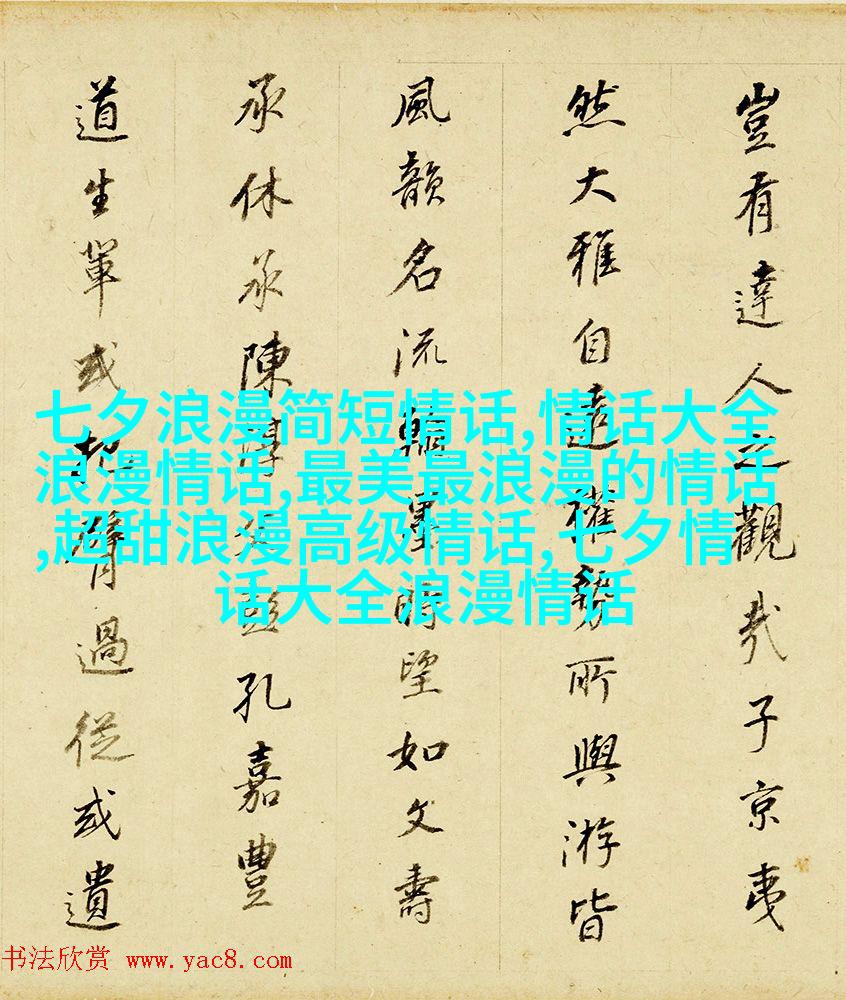 豈有達人之觀哉子京夷
然大雅自遠權勢所與游皆
風韻名流翰墨時望如文壽
承休承陳淳父彭孔嘉豐
道生輩或把臂過從或遺
七夕浪漫简短情话,情话大全
浪漫情话,最美最浪漫的情话
,超甜浪漫高级情话,七夕情
话大全浪漫情话
书法欣赏 www.yac8.com